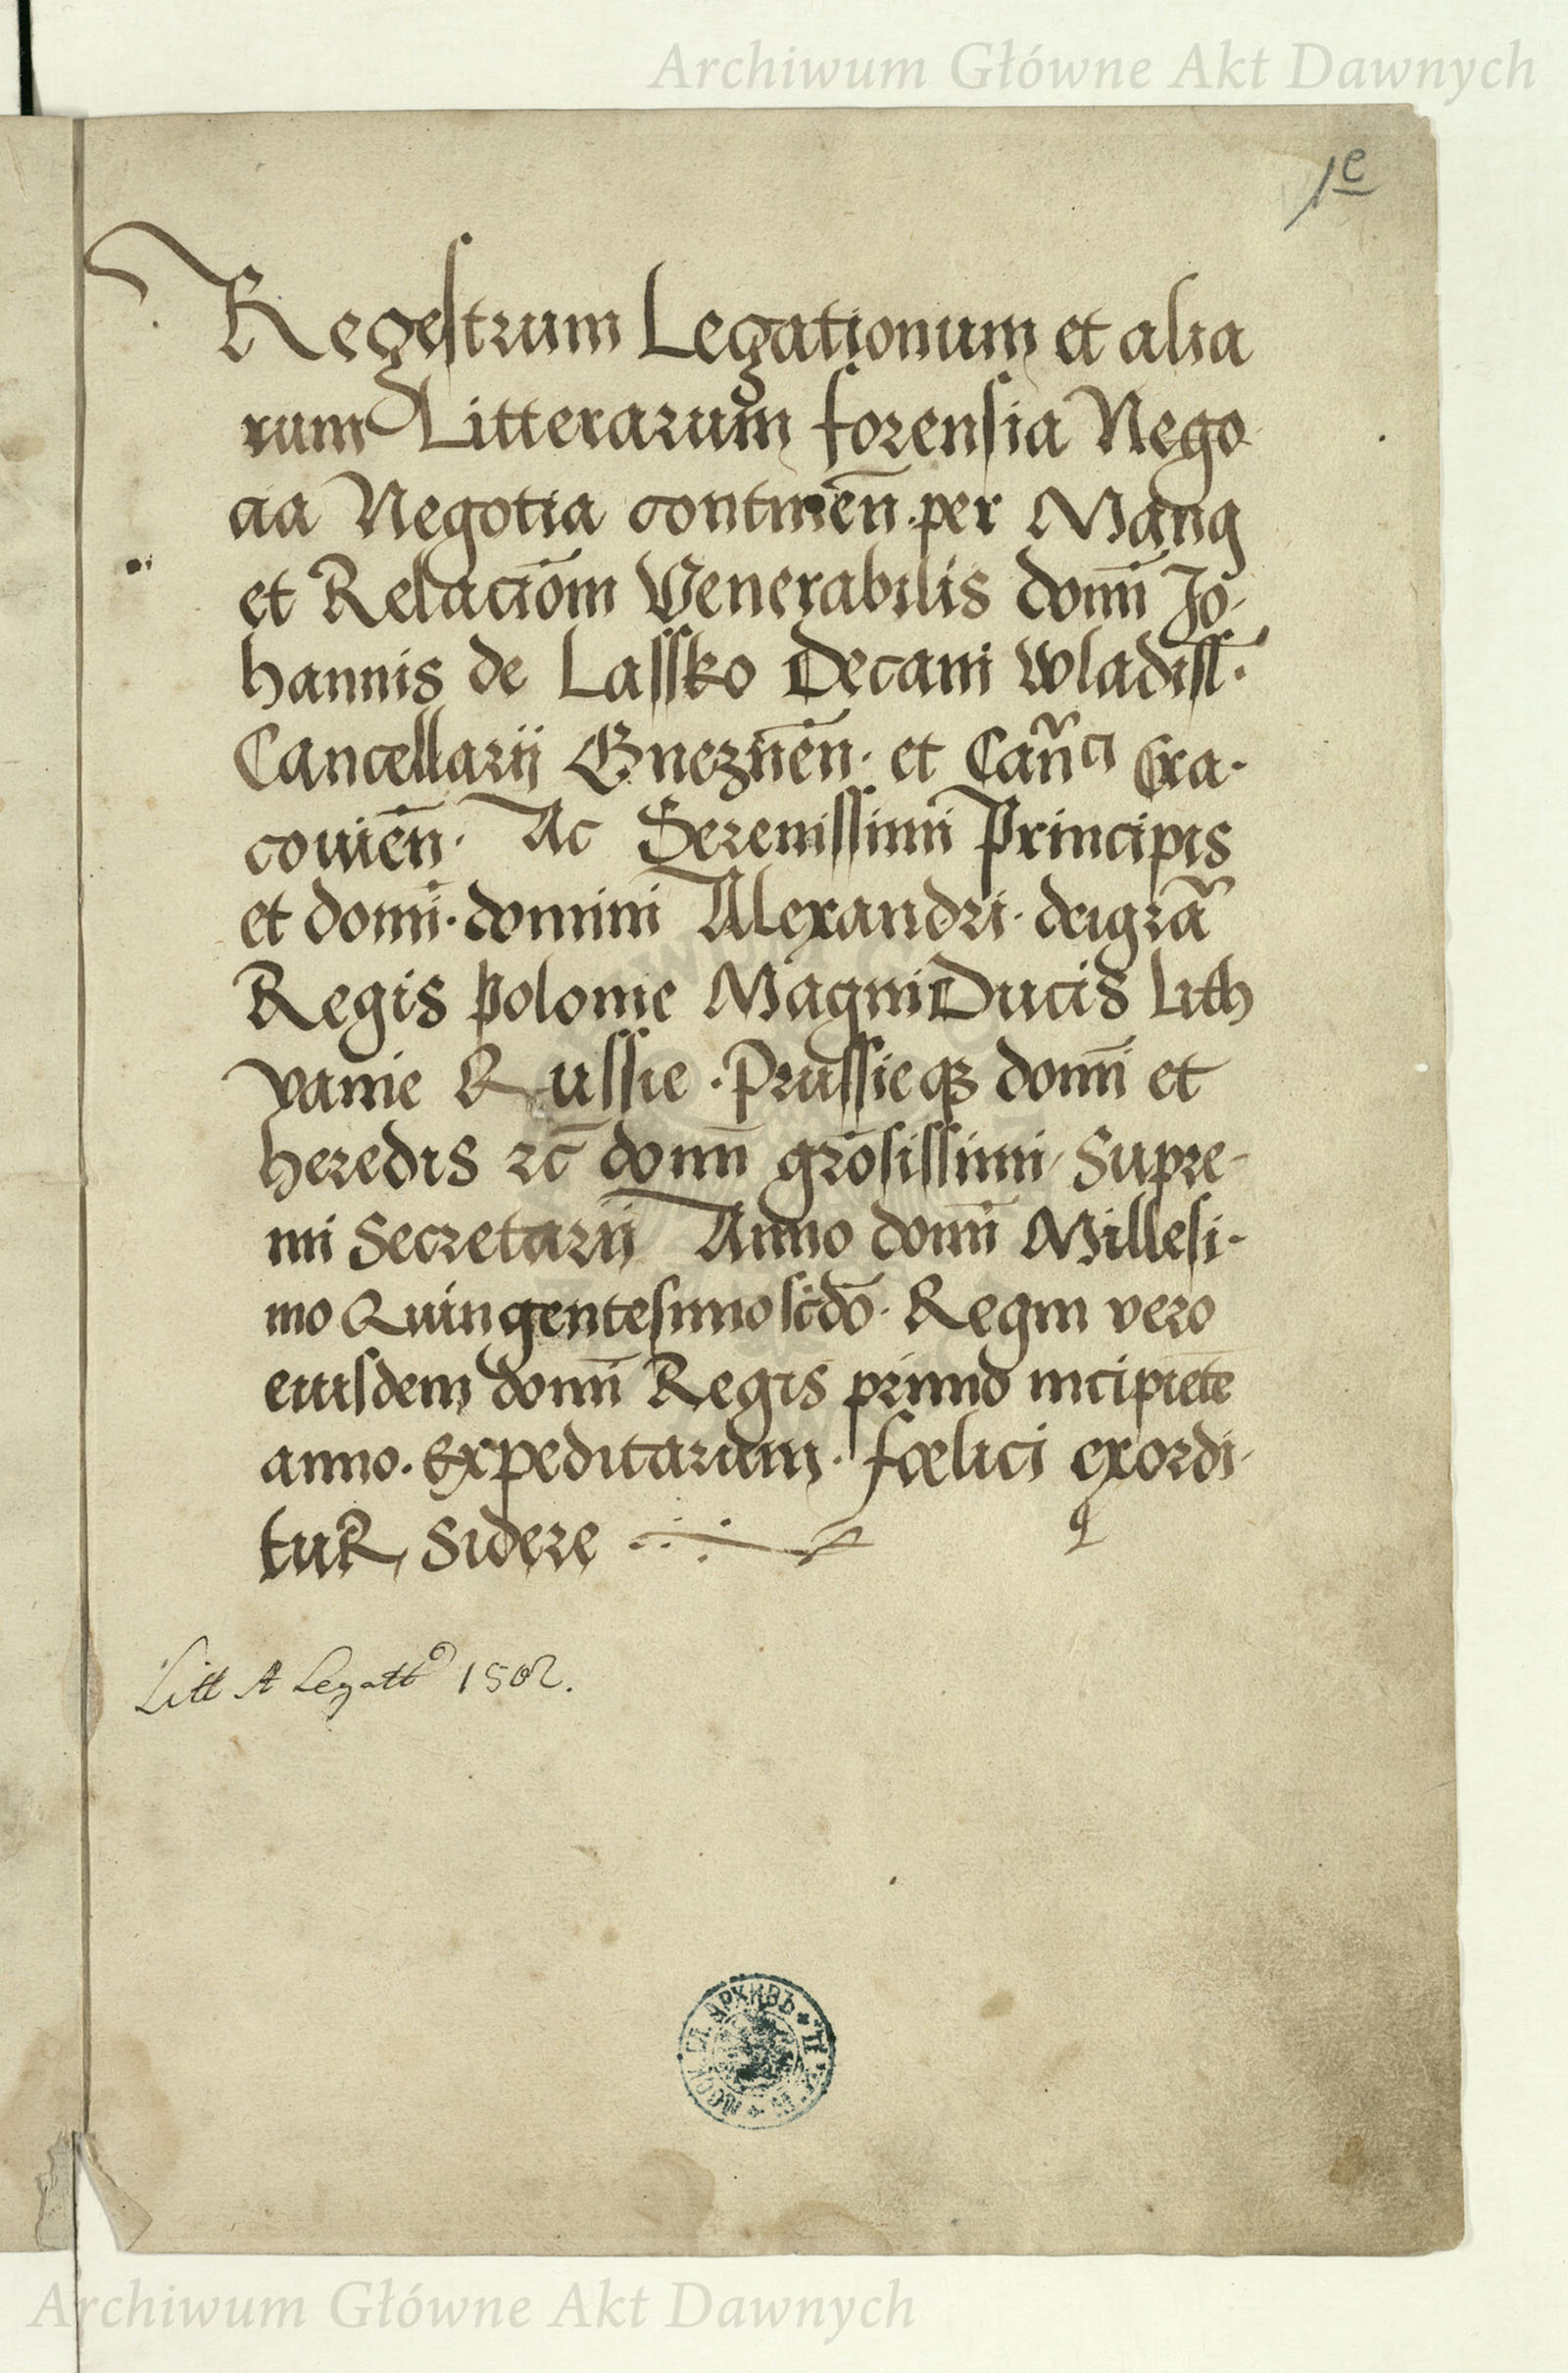 Archiwum Główne Akt Dawnych
1e
Regestrum Legationum et alia
rum Litterarum forensia Nego
cia Negotia continen̄. per Mang
et Relaciōm Venerabilis domī Jo-
hannis de Lassko Decani Wladisl̄.
Cancellarij Gneznēn. et Can̄ci Cra-
coviēn. Ac Serenissimi Principis
et domī. domini Alexandri. dei grā
Regis Polonie Magni Ducis Lith
vanie Russie. Prussieqꝫ domī et
heredis ꝛc̄ domī grōsissimi Supre-
mi Secretarij Anno domī Millesi-
mo Quingentesimo scdō. Regni vero
eiusdem domī Regis primo incipiēte
anno. Expeditarum. foelici exordi-
tur Sidere
Litt A Legatt 1502.
Archiwum Główne Akt Dawnych